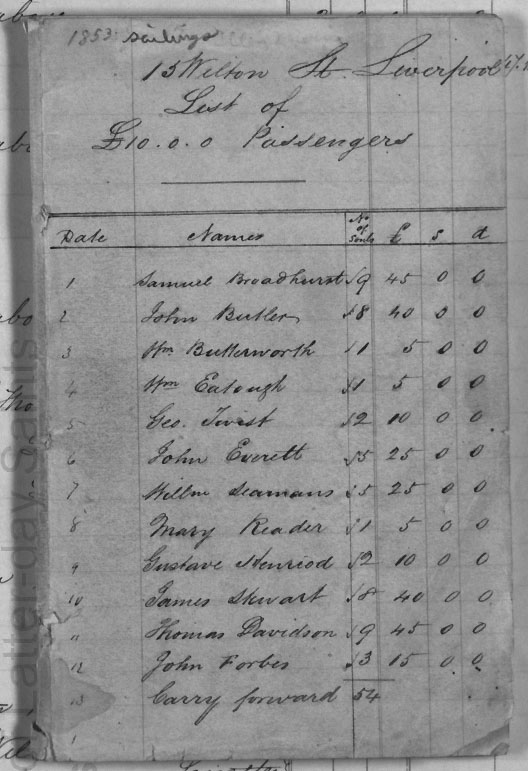 1853 sailings
15 Wilton St. Liverpool
List of
£10.0.0 Passengers
Date Names No of Souls £ s d
1 Samuel Broadhurst 9 45 0 0
2 John Butler 8 40 0 0
3 Wm Butterworth 1 5 0 0
4 Wm Eatough 1 5 0 0
5 Geo. Twist 2 10 0 0
6 John Everett 5 25 0 0
7 Willm Seamans 5 25 0 0
8 Mary Reader 1 5 0 0
9 Gustave Henriod 2 10 0 0
10 James Stewart 8 40 0 0
11 Thomas Davidson 9 45 0 0
12 John Forbes 3 15 0 0
13 Carry forward 54
1
Latter-day Saints